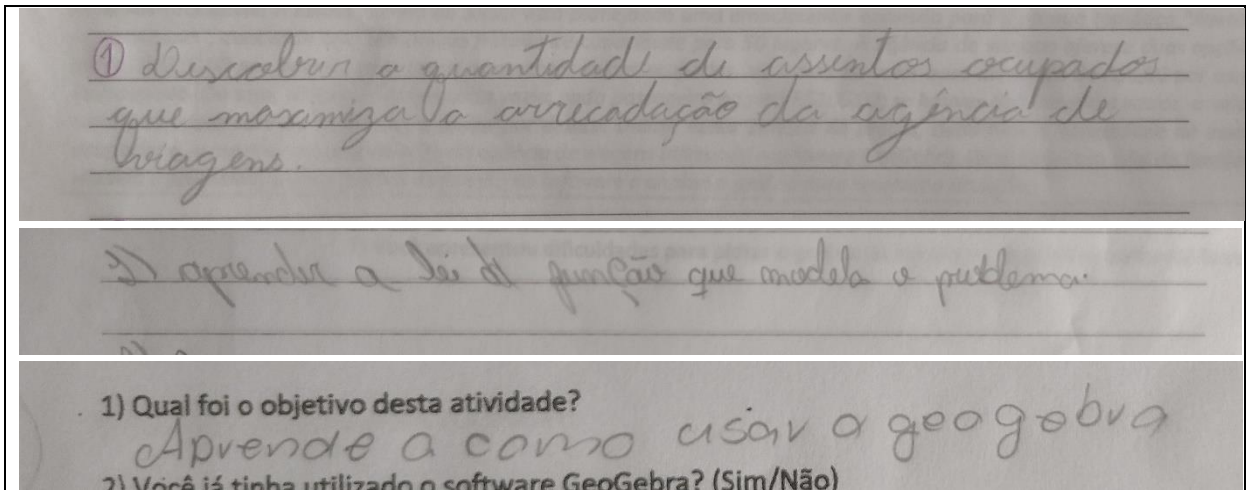 ① Descobrir a quantidade de assentos ocupados
que maximiza a arrecadação da agência de
viagens.
1) aprender a lei da função que modela o problema.
1) Qual foi o objetivo desta atividade?
Aprende a como usar o geogebra
2) Você já tinha utilizado o software GeoGebra? (Sim/Não)